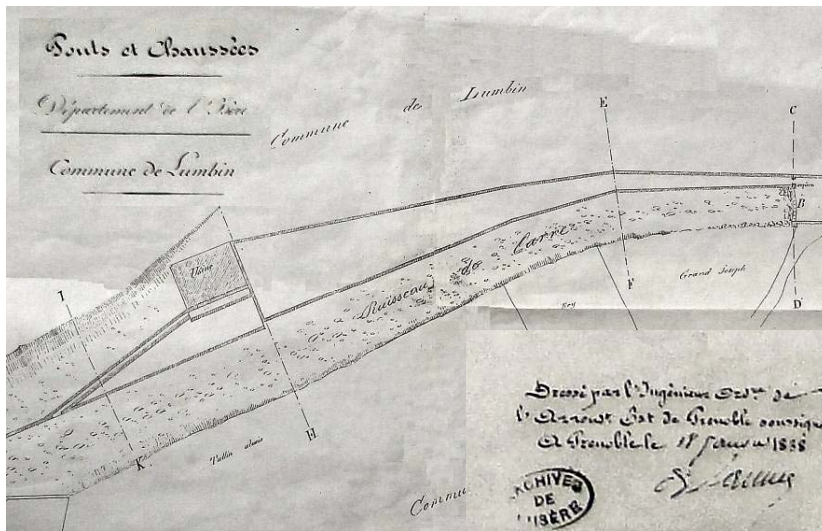 Ponts et Chaussées
Département de l'Isère
Commune de Lumbin
Commune de Lumbin
E
C
B
Usine
Ruisseau de Carre
Grand Joseph
I
F
D
K
H
Commu
Dressé par l'Ingénieur Ord.re de
l'Arrond.t Est de Grenoble soussign
A Grenoble le 1838
ARCHIVES
DE
L'ISÈRE